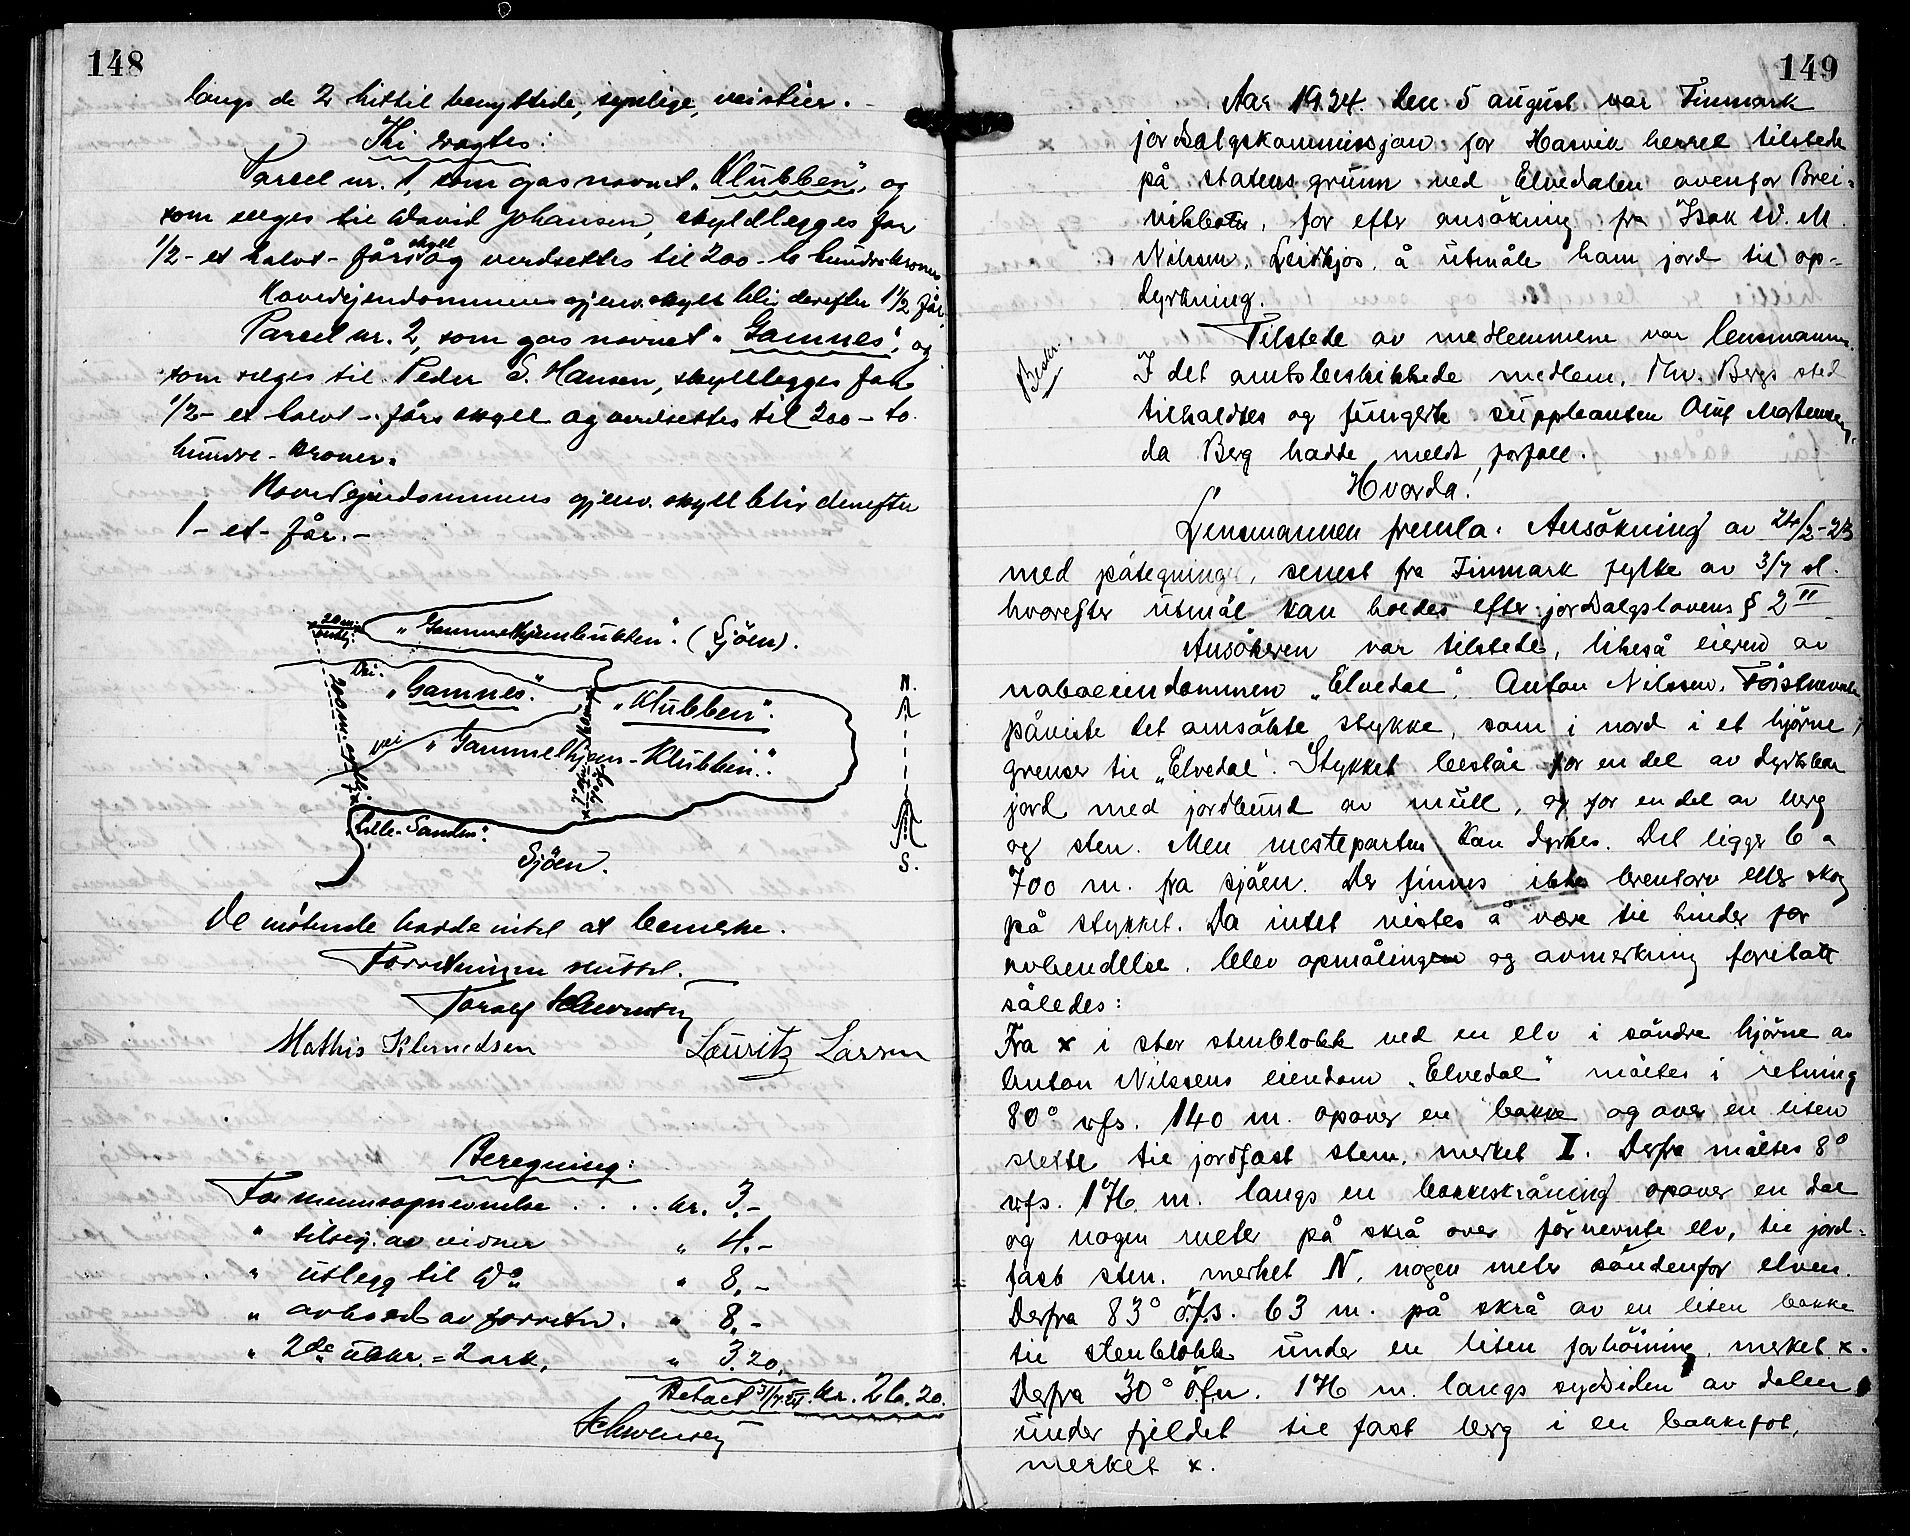 148
langs de 2 hittil benyttede, synlige, veistier. -
Thi vagtes:
Parcel nr. 1, som gas navnet "Klubben", og
som selges til David Johansen, skyldlegges for
1/2 - et halvt - fårs skyll og verdsettes til 200 - to hundre kroner.
Hovedejendommens gjenv. skyll blir derefter 1 1/2 får.
Parcel nr. 2, som gas navnet "Gamnes", og
som selges til Peder S. Hansen, skylllegges for
1/2 - et halvt - fårs skyll og verdsettes til 200 - to
hundre - kroner.
Hovedejendommens gjenv. skyll blir derefter
1 - et - får. -
20 m.
"Gammelhjembukten". (Sjöen).
"Gamnes".
"Klubben".
N.
200 m.
vei
"Gammelhjem-Klubben".
"Lille-Sanden".
Sjöen.
S.
De mötende hadde intet at bemerke.
Forretningen sluttet.
Toralf Schwensen
Mathis Klemedsen Lauritz Larsen
Beregning:
For mennsopnevnelse . . . . kr. 3.-
" tilsig. av vidner " 4.-
" utlegg til Do " 8.-
" avhold av forretn. " 8.-
" 2de utskr. = 2 ark. " 3.20.
Betalt kr. 26.20.
Schwensen
149
Aar 1924. den 5 august var Finmark
jordsalgskommissjon for Hasvik herred tilstede
på statens grunn ved Elvedalen ovenfor Brei-
vikbotn, for efter ansökning fra Isak W. M.
Nilssen, Leirkjos, å utmåle ham jord til op-
dyrkning.
Tilstede av medlemmene var lensmannen.
I det amtsbeskikkede medlem, Thv. Bergs sted
tilkaldtes og fungerte suppleanten Oluf Mortensen,
da Berg hadde meldt forfall.
Hvorda!
Lensmannen fremla: Ansökning av 24/2-23
med påtegninger, senest fra Finmark fylke av 3/7 sl.
hvorefter utmål kan holdes efter jordsalgslovens § 2 II
Ansökeren var tilstede, likeså eieren av
naboeiendommen "Elvedal", Anton Nilssen. Förstnevnte
påviste det ansökte stykke, som i nord i et hjörne
grenser til "Elvedal". Stykket består for en del av dyrkbar
jord med jordbund av muld, og for en del av berg
og sten. Men mesteparten kan dyrkes. Det ligger 6 a
700 m. fra sjöen. Der finnes ikke brentorv eller skog
på stykket. Da intet vistes å være til hinder for
avhendelse, blev opmålingen og avmerkning foretatt
således:
Fra x i stor stenblokk ved en elv i söndre hjörne av
Anton Nilssens eiendom "Elvedal" måltes i retning
80° vfs. 140 m. opover en bakke og over en liten
slette til jordfast sten, merket I. Derfra måltes 8°
vfs. 176 m. langs en bakkeskråning opover en dal
og nogen meter på skrå over förnevnte elv, til jord-
fast sten, merket N, nogen meter söndenfor elven.
Derfra 83° öfs. 63 m. på skrå av en liten bakke
til stenblokk under en liten forhöining, merket x.
Derfra 30° öfn. 176 m. langs sydsiden av dalen
under fjeldet til fast berg i en bakkefot,
merket x.